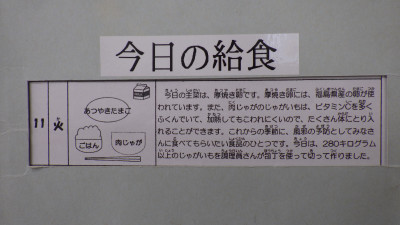 今日の給食
11
火
か
あつやきたまご
ごはん
肉じゃが
今日の主菜は、厚焼き卵です。厚焼き卵には、福島県産の卵が使
われています。また、肉じゃがのじゃがいもは、ビタミンCを多く
ふくんでいて、加熱してもこわれにくいので、たくさん体にとり入
れることができます。これからの季節に、風邪の予防としてみなさ
んに食べてもらいたい食品のひとつです。今日は、280キログラム
以上のじゃがいもを調理員さんが包丁を使って切って作りました。